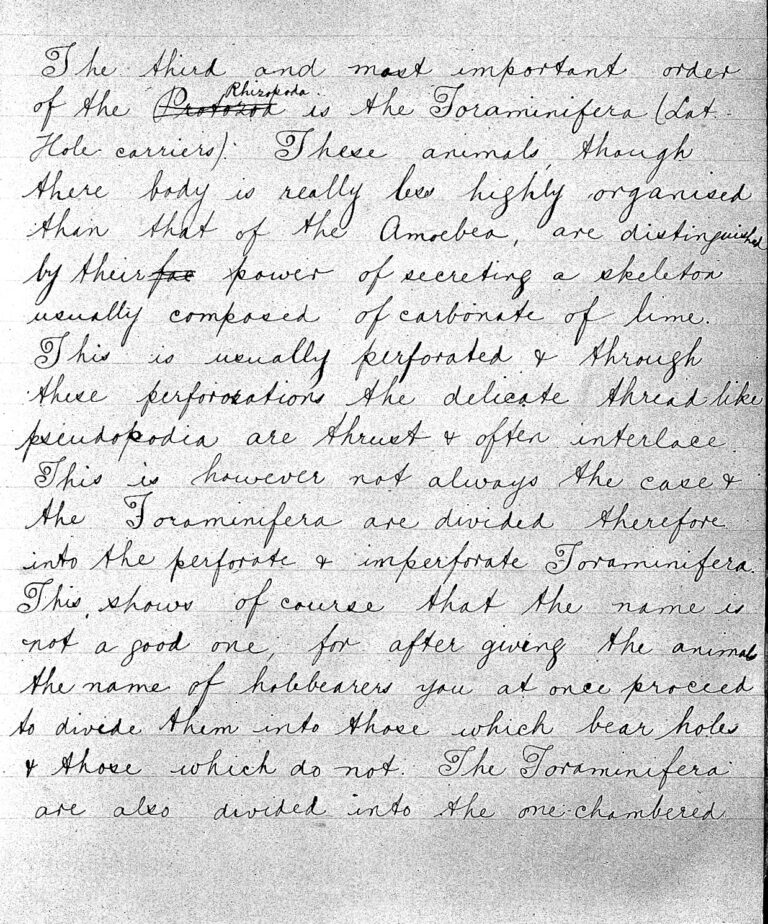 The third and most important order
of the Protozoa Rhizopoda. is the Foraminifera (Lat.
Hole carriers). These animals, though
there body is really less highly organised
than that of the Amoebea, are distinguished
by their fac power of secreting a skeleton
usually composed of carbonate of lime.
This is usually perforated & through
these perfororations the delicate thread like
pseudopodia are thrust & often interlace.
This is however not always the case &
the Foraminifera are divided therefore
into the perforate & imperforate Foraminifera.
This shows of course that the name is
not a good one, for after giving the animals
the name of holebearers you at once proceed
to divide them into those which bear holes
& those which do not. The Foraminifera
are also divided into the one-chambered